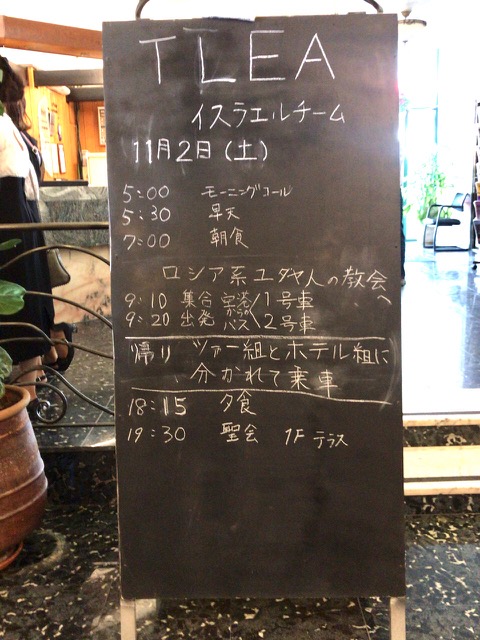 TLEA
イスラエルチーム
11月2日(土)
5:00 モーニングコール
5:30 早天
7:00 朝食
ロシア系ユダヤ人の教会へ
9:10 集合 空港からのバス 1号車
9:20 出発 2号車
帰り ツアー組とホテル組に
分かれて乗車
18:15 夕食
19:30 聖会 1F テラス